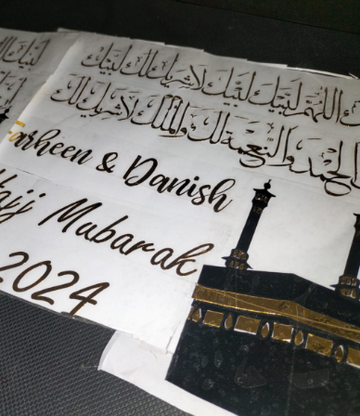 لبيك اللهم لبيك لبيك لا شريك لك لبيك
الحمد والنعمة لك والملك لا شريك لك
Farheen & Danish
Hajj Mubarak
2024